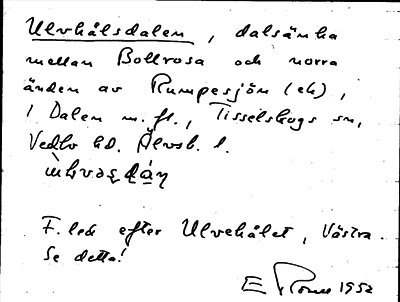 Ulvhålsdalen, dalsänka
mellan Bollrosa och norra
änden av Rumpesjön (ek),
i Dalen m. fl., Tisselskogs sn,
Vedbo hd. Älvsb. l.
F. led efter Ulvehålet, Västra.
Se detta!
E 1952